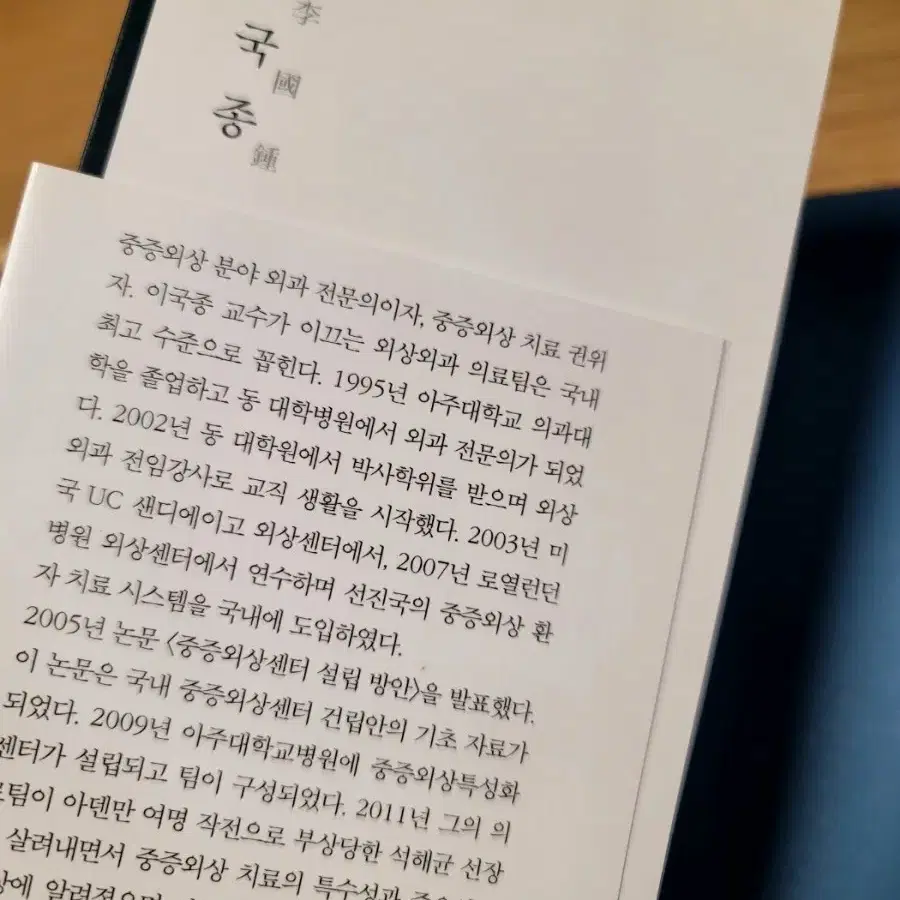 李
국
國
종
鍾
중증외상 분야 외과 전문의이자, 중증외상 치료 권위
자. 이국종 교수가 이끄는 외상외과 의료팀은 국내
최고 수준으로 꼽힌다. 1995년 아주대학교 의과대
학을 졸업하고 동 대학병원에서 외과 전문의가 되었
다. 2002년 동 대학원에서 박사학위를 받으며 외상
외과 전임강사로 교직 생활을 시작했다. 2003년 미
국 UC 샌디에이고 외상센터에서, 2007년 로열런던
병원 외상센터에서 연수하며 선진국의 중증외상 환
자 치료 시스템을 국내에 도입하였다.
2005년 논문 〈중증외상센터 설립 방안〉을 발표했다.
이 논문은 국내 중증외상센터 건립안의 기초 자료가
되었다. 2009년 아주대학교병원에 중증외상특성화
센터가 설립되고 팀이 구성되었다. 2011년 그의 의
료팀이 아덴만 여명 작전으로 부상당한 석해균 선장
살려내면서 중증외상 치료의 특수성과
상에 알려졌으며